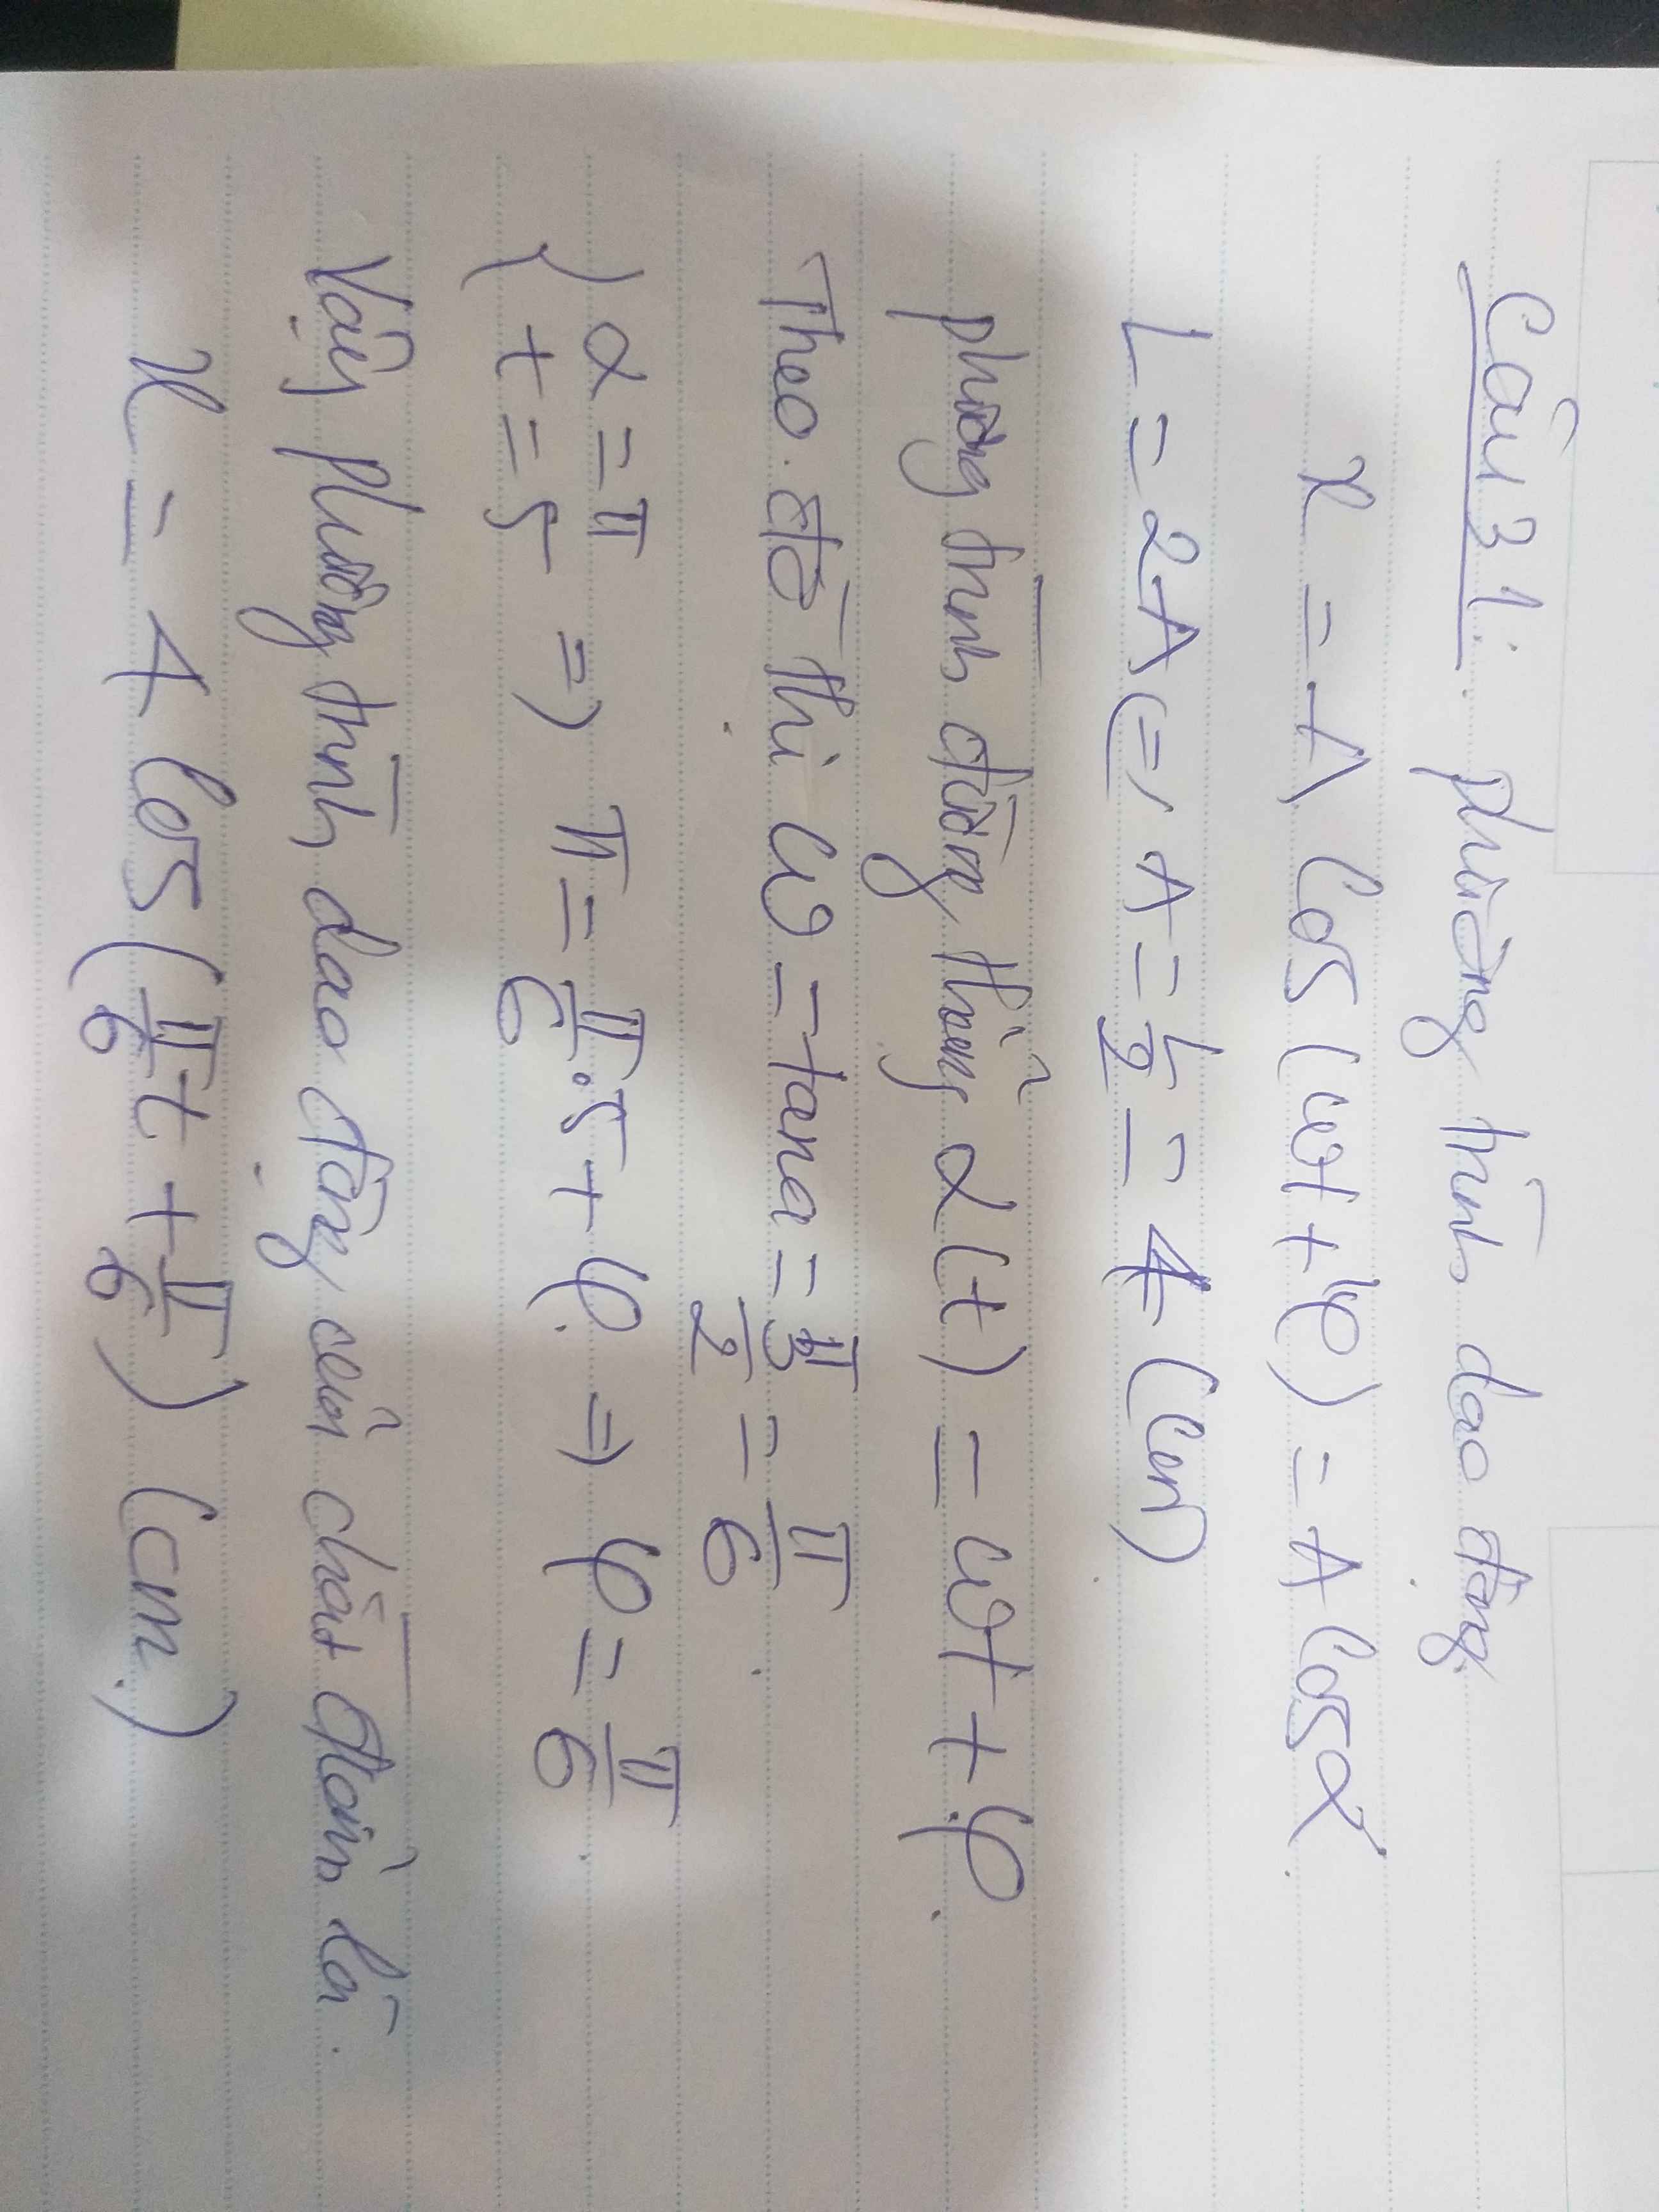 Câu 31: phương trình dao động.
x = A cos(ωt + φ) = A cosα.
L = 2A (=) A = L/2 = 4 (cm)
phương trình đường thẳng α(t) = ωt + φ.
Theo đồ thị ω = tana = π/3/2 = π/6.
{ α = π
t = 5 => π = π/6 . 5 + φ. => φ = π/6
Vậy phương trình dao động của chất điểm là.
x = 4 cos(π/6 t + π/6) (cm.)